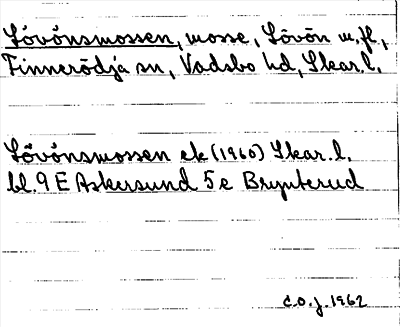 Lövönsmossen, mosse, Lövön m.fl.,
Finnerödja sn, Vadsbo hd, Skar.l.
Lövönsmossen ek (1960) Skar.l.
bl. 9 E Askersund 5 e Brynterud
C.O.J. 1962